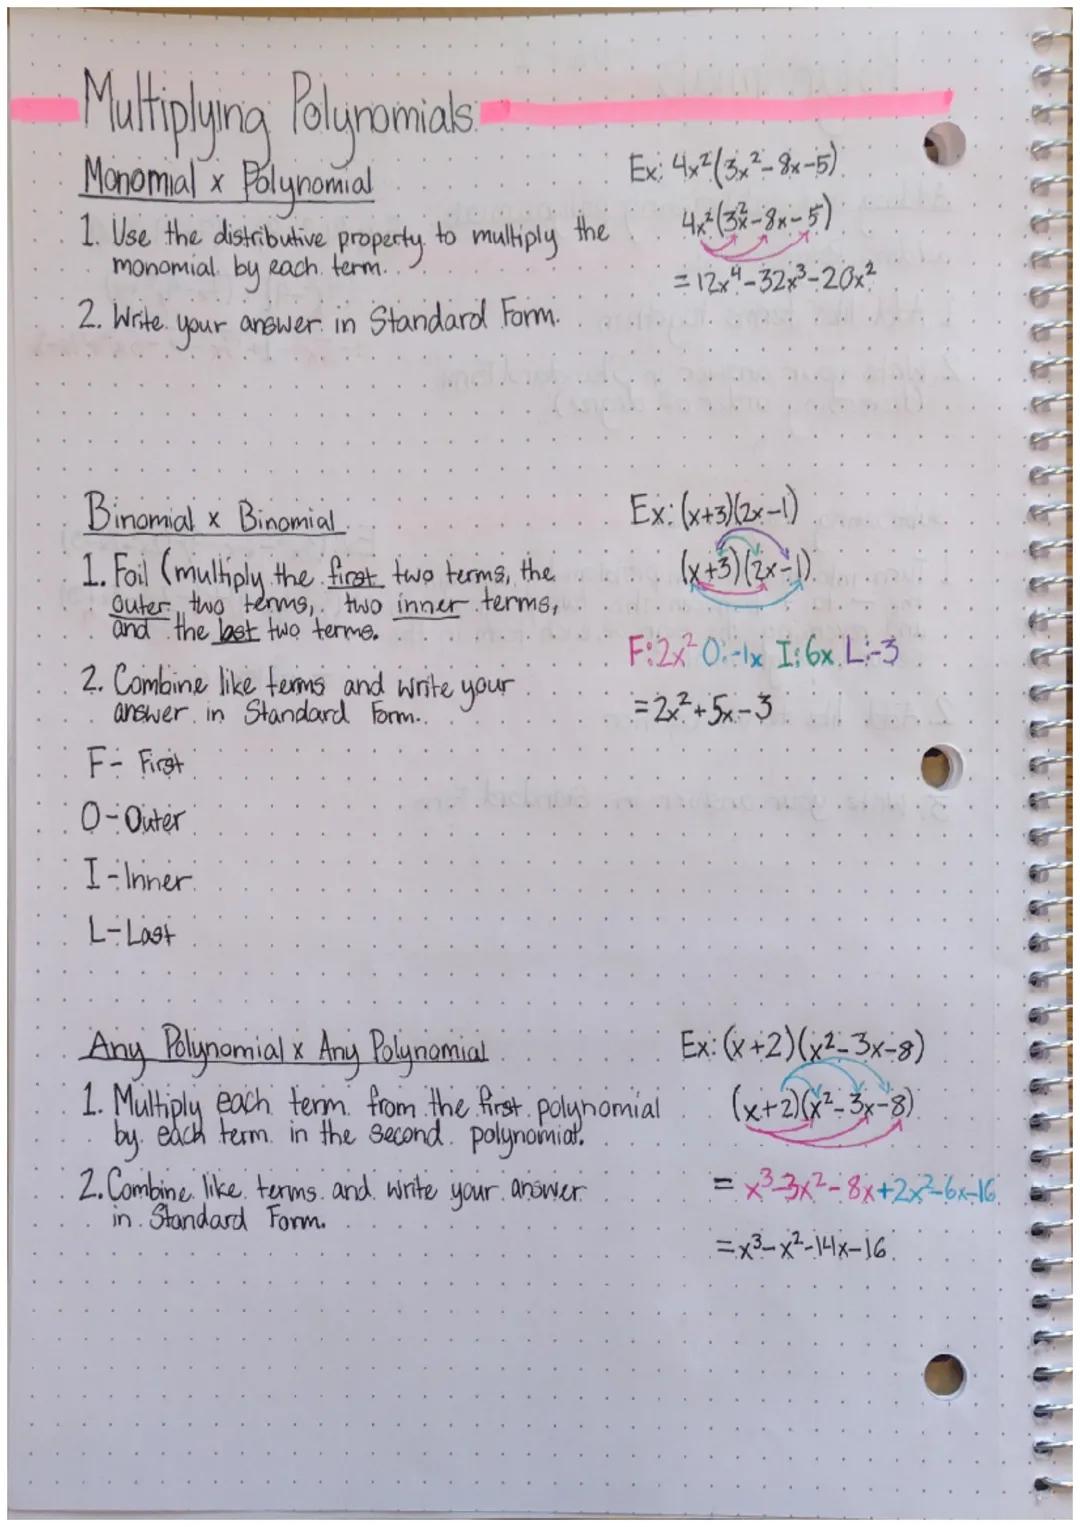 Multiplying Polynomials
Monomial x Polynomial
1. Use the distributive property to multiply the
monomial by each term.
2. Write your answer in Standard Form.
Ex: 4x²(3x²-8x-5)
4x²(3x²-8x-5)
=12x⁴-32x³-20x²
Binomial x Binomial
1. Foil (multiply the first two terms, the
outer two terms, two inner terms,
and the last two terms.
2. Combine like terms and write your
answer in Standard Form.
F- First
O- Outer
I- Inner
L- Last
Ex: (x+3)(2x-1)
(x+3)(2x-1)
F: 2x² O: -1x I: 6x L: -3
=2x²+5x-3
Any Polynomial x Any Polynomial
1. Multiply each term from the first polynomial
by each term in the second polynomial.
2. Combine like terms and write your answer
in Standard Form.
Ex: (x+2)(x²-3x-8)
(x+2)(x²-3x-8)
= x³-3x²-8x+2x²-6x-16
=x³-x²-14x-16